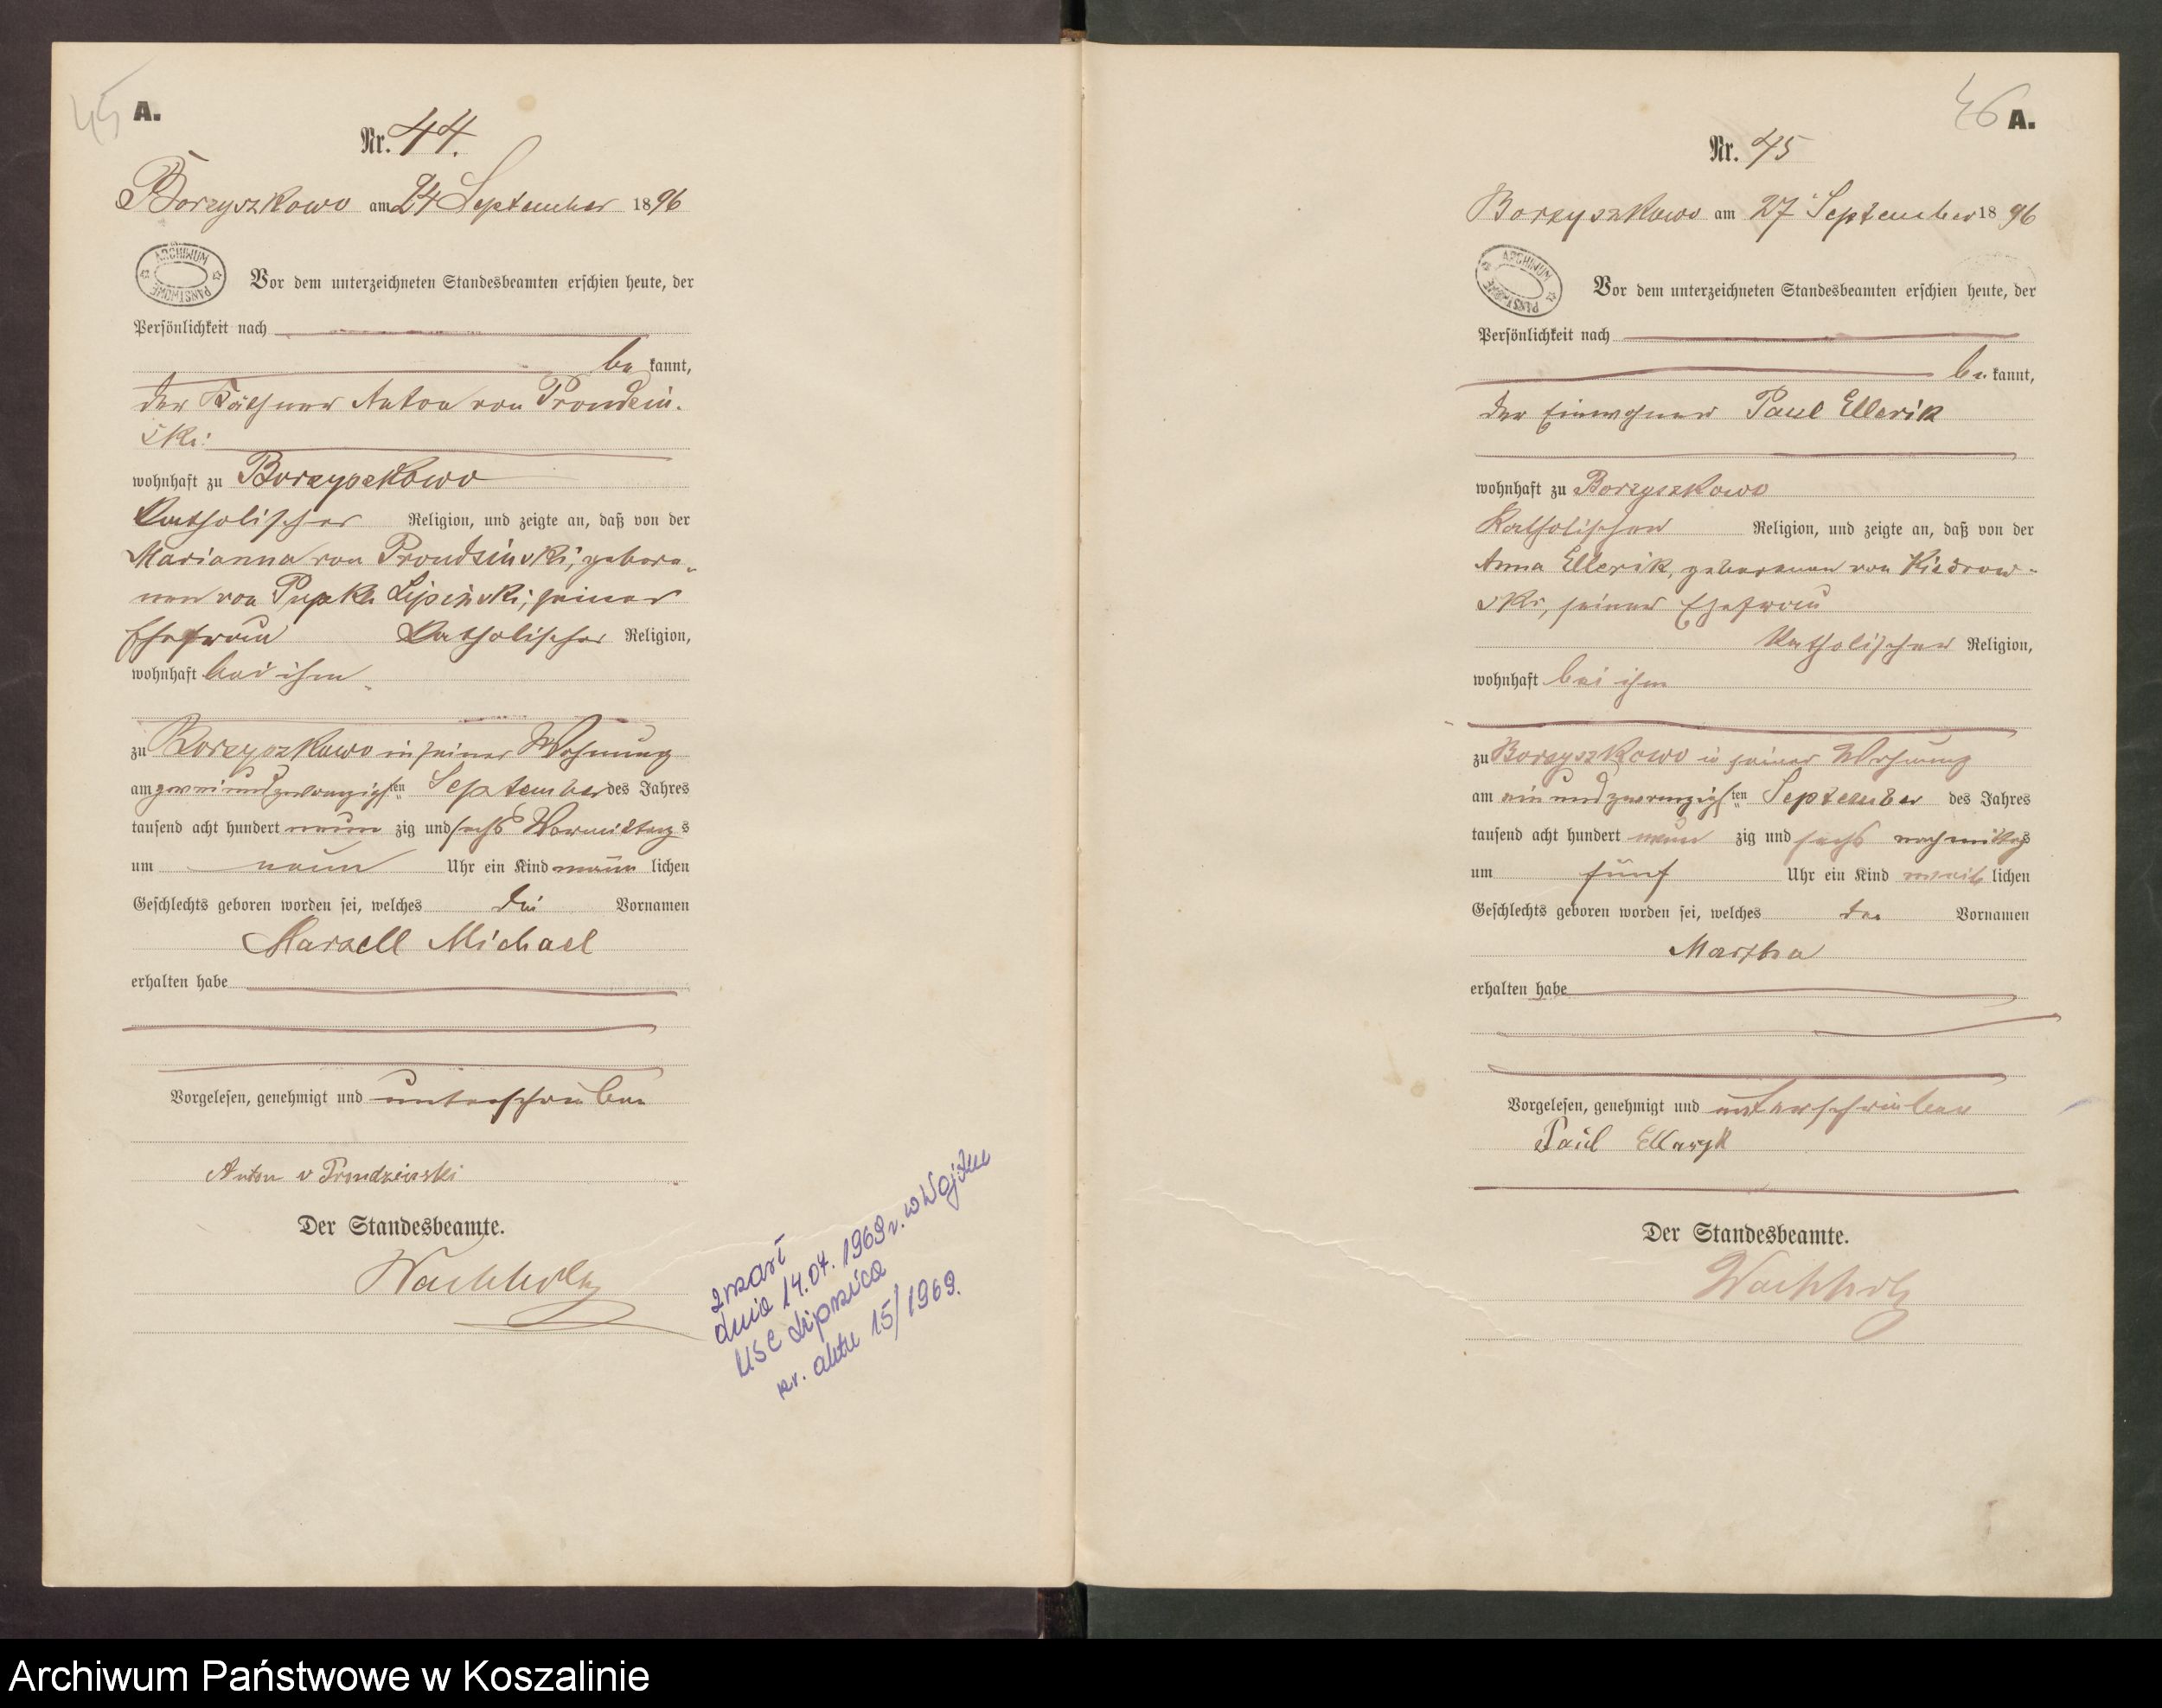 45 A.
Nr. 44.
Borzyszkowo am 24 September 1896
ARCHIWUM PAŃSTWOWE
Vor dem unterzeichneten Standesbeamten erschien heute, der
Persönlichkeit nach
be kannt,
der Käthner Anton von Prondzin-
ski
wohnhaft zu Borzyszkowo
Katholischer Religion, und zeigte an, daß von der
Marianna von Prondzinski, gebore-
nen von Pupka Lipinski, seiner
Ehefrau Katholischer Religion,
wohnhaft bei ihm
zu Borzyszkowo in seiner Wohnung
am zwei und zwanzigsten September des Jahres
tausend acht hundert neun zig und sechs Vormittags
um neun Uhr ein Kind männ lichen
Geschlechts geboren worden sei, welches die Vornamen
Marzell Michael
erhalten habe
Vorgelesen, genehmigt und unterschrieben
Anton v Prondzinski
Der Standesbeamte.
Wachholz
zmarł
dnia 14.04.1969 r. w Wojsku
USC Lipnica
nr. aktu 15/1969.
46 A.
Nr. 45
Borzyszkowo am 27 September 1896
ARCHIWUM PAŃSTWOWE
Vor dem unterzeichneten Standesbeamten erschien heute, der
Persönlichkeit nach
be kannt,
der Einwohner Paul Ellerik
wohnhaft zu Borzyszkowo
Katholischer Religion, und zeigte an, daß von der
Anna Ellerik, geborenen von Kiedrow-
ski, seiner Ehefrau
Katholischer Religion,
wohnhaft bei ihm
zu Borzyszkowo in seiner Wohnung
am ein und zwanzigsten September des Jahres
tausend acht hundert neun zig und sechs nachmittags
um fünf Uhr ein Kind weib lichen
Geschlechts geboren worden sei, welches den Vornamen
Martha
erhalten habe
Vorgelesen, genehmigt und unterschrieben
Paul Elleryk
Der Standesbeamte.
Wachholz
Archiwum Państwowe w Koszalinie